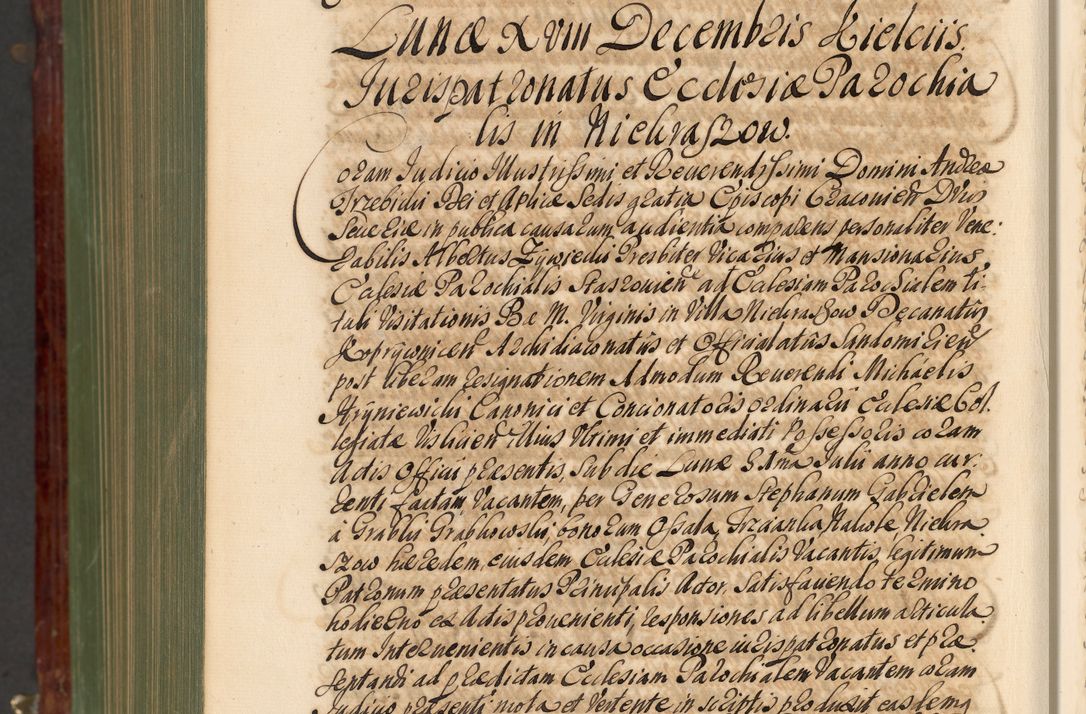 Lunæ XVIII Decembris Kielciis.
Jurispatronatus Ecclesiæ Parochia
lis in Niekraszow.
Coram Judicio Illustrissimi et Reverendissimi Domini Andreæ
Trzebicki Dei et Aplicæ Sedis gratia Episcopi Cracovien Ducis
Severiæ in publica causarum audientia comparens personaliter Vene:
rabilis Albertus Zywiecki Presbiter Vicarius et Mansionarius
Ecclesiæ Parochialis Staszovien ad Ecclesiam Parochialem ti-
tuli Visitationis B. M. Virginis in Villa Niekraszow Decanatus
Koprzywnicen Archidiaconatus et Officialatus Sandomirien
post liberam resignationem Admodum Reverendi Michaelis
Hryniewicki Canonici et Concionatoris ordinarii Ecclesiæ Col.
legiatæ Vislicien illius Ultimi et immediati Possessoris coram
Actis Officii præsentis, sub die Lunæ Julii anno cur:
renti factam Vacantem, per Generosum Stephanum Gabrielem
à Grabki Grabkowski, bonorum Ossala, Trzcianka Nakole, Niekra
szow hæredem, eiusdem Ecclesiæ Parochialis Vacantis, legitimum
Patronum præsentatus Principalis Actor, satisfaciendo termino
hodierno ex Actis provenienti, responsiones ad libellum articula
tum Intervenientis in causa occasione jurispatronatus et præ
sentandi ad prædictam Ecclesiam Parochialem Vacantem coram
Judicio præsenti mota et Vertente in scriptis produxit easdemq